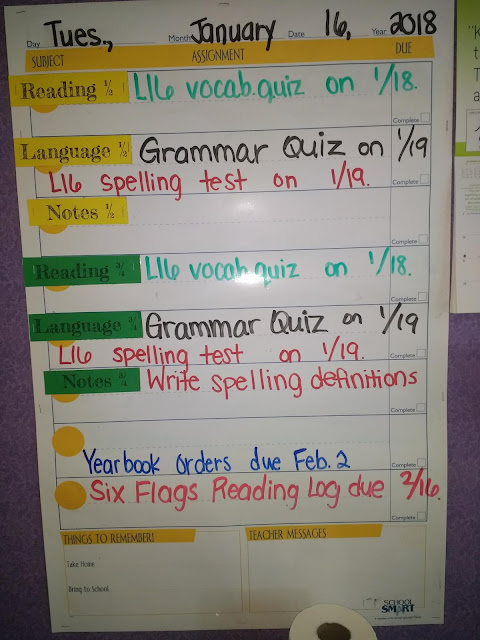 Day Tues., Month January Date 16, Year 2018
SUBJECT ASSIGNMENT DUE
Reading 1/2 L16 vocab. quiz on 1/18.
Complete
Language 1/2 Grammar Quiz on 1/19
L16 spelling test on 1/19.
Complete
Notes 1/2
Complete
Reading 3/4 L16 vocab. quiz on 1/18.
Complete
Language 3/4 Grammar Quiz on 1/19
L16 spelling test on 1/19.
Complete
Notes 3/4 Write spelling definitions
Complete
Yearbook orders due Feb. 2
Complete
Six Flags Reading Log due 2/16.
Complete
THINGS TO REMEMBER!
Take Home
Bring to School
TEACHER MESSAGES
SCHOOL
SMART